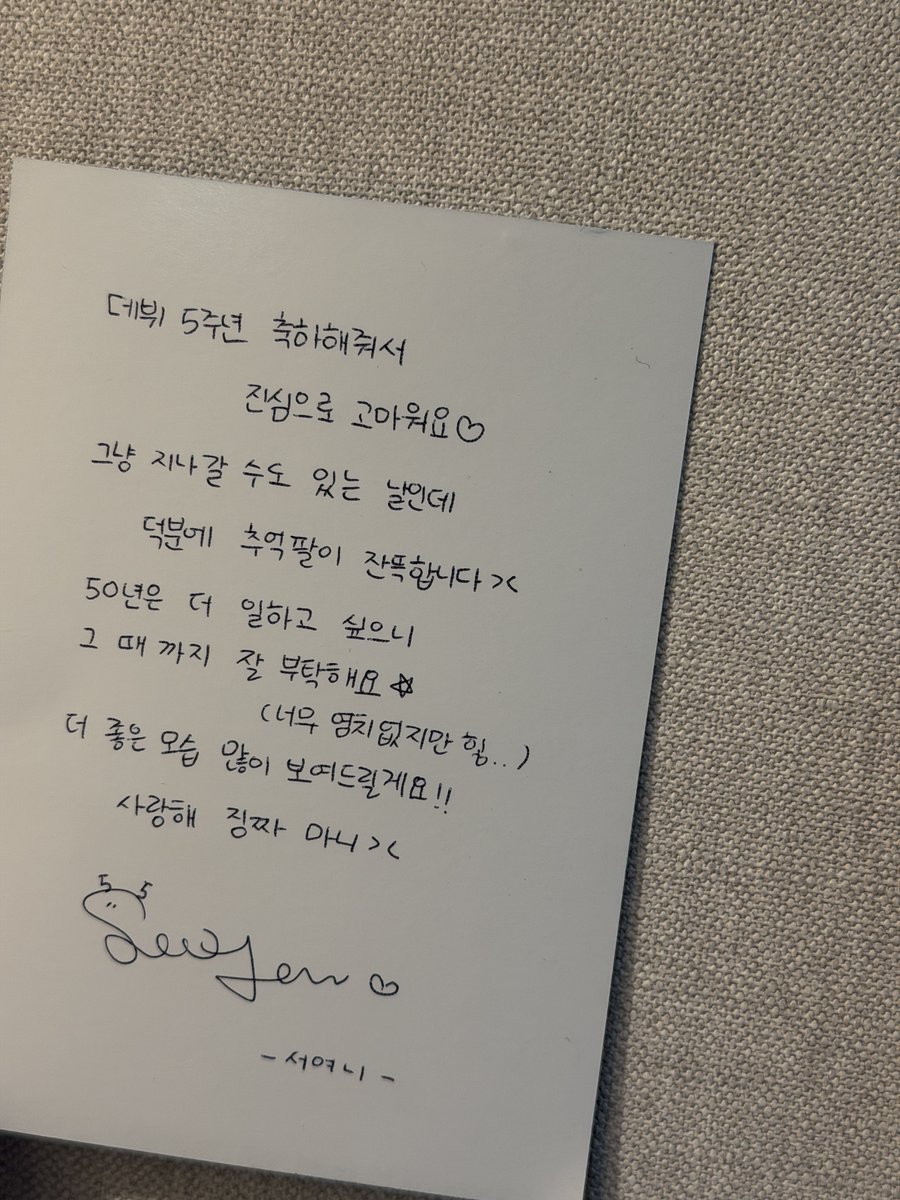 데뷔 5주년 축하해줘서
진심으로 고마워요♡
그냥 지나갈 수도 있는 날인데
덕분에 추억팔이 잔뜩합니다><
50년은 더 일하고 싶으니
그 때 까지 잘 부탁해요☆
(너무 염치없지만 힣..)
더 좋은 모습 많이 보여드릴게요!!
사랑해 징짜 마니><
5 5
SeoYeon♡
- 서여니 -